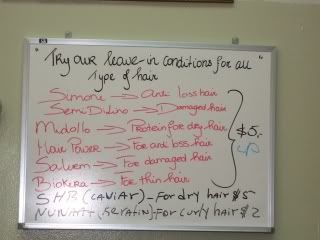 "Try our leave-in conditions for all
Type of hair "
Simone → anti loss hair
Semi DiLino → Damaged hair
Midollo → Protein for dry hair
Hair Power → For anti loss hair
$5,-
Salvem → For damaged hair
Biokera → For thin hair
SHB (CAVIAR) - For dry hair $5
(KERATIN) - For curly hair $2